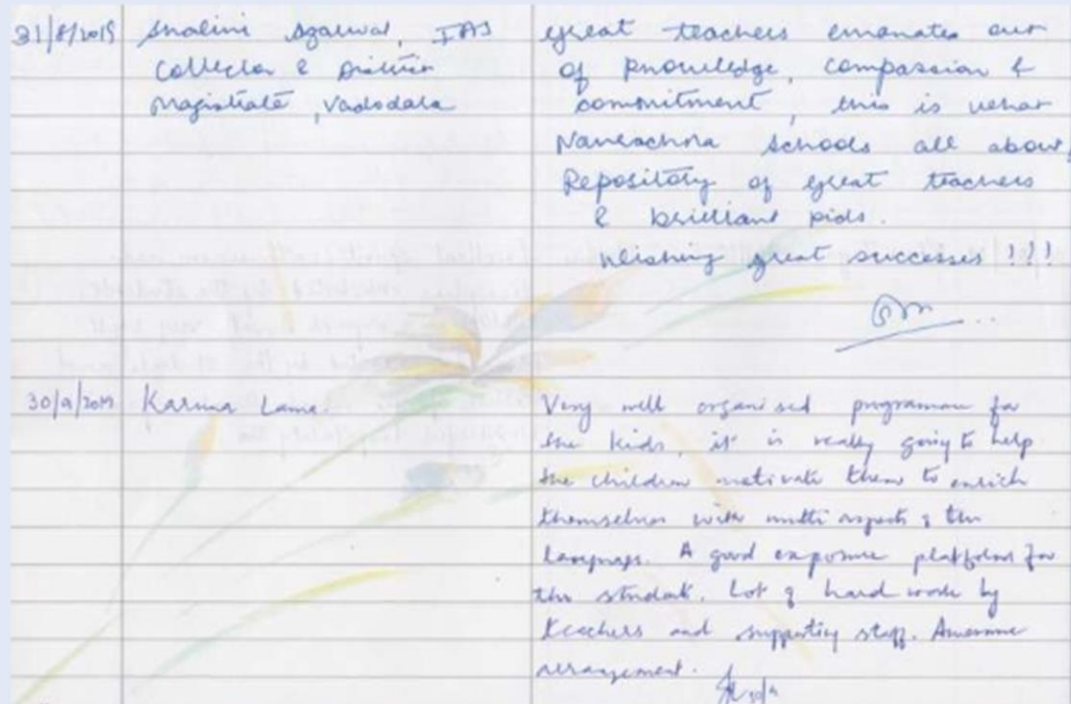 31/8/2019 Shalini Agarwal, IAS
Collector & District
Magistrate, Vadodara
Great teachers emanates out
of knowledge, compassion &
commitment, this is what
Navrachna Schools all about,
Repository of great teachers
& brilliant kids.
Wishing great successes !!!
30/9/2019 Karuna Lama
Very well organised programme for
the kids, it is really going to help
the children motivate them to enrich
themselves with multi aspects of the
language. A good exposure platform for
the students. Lot of hard work by
teachers and supporting staff. Awesome
arrangement.
30/9